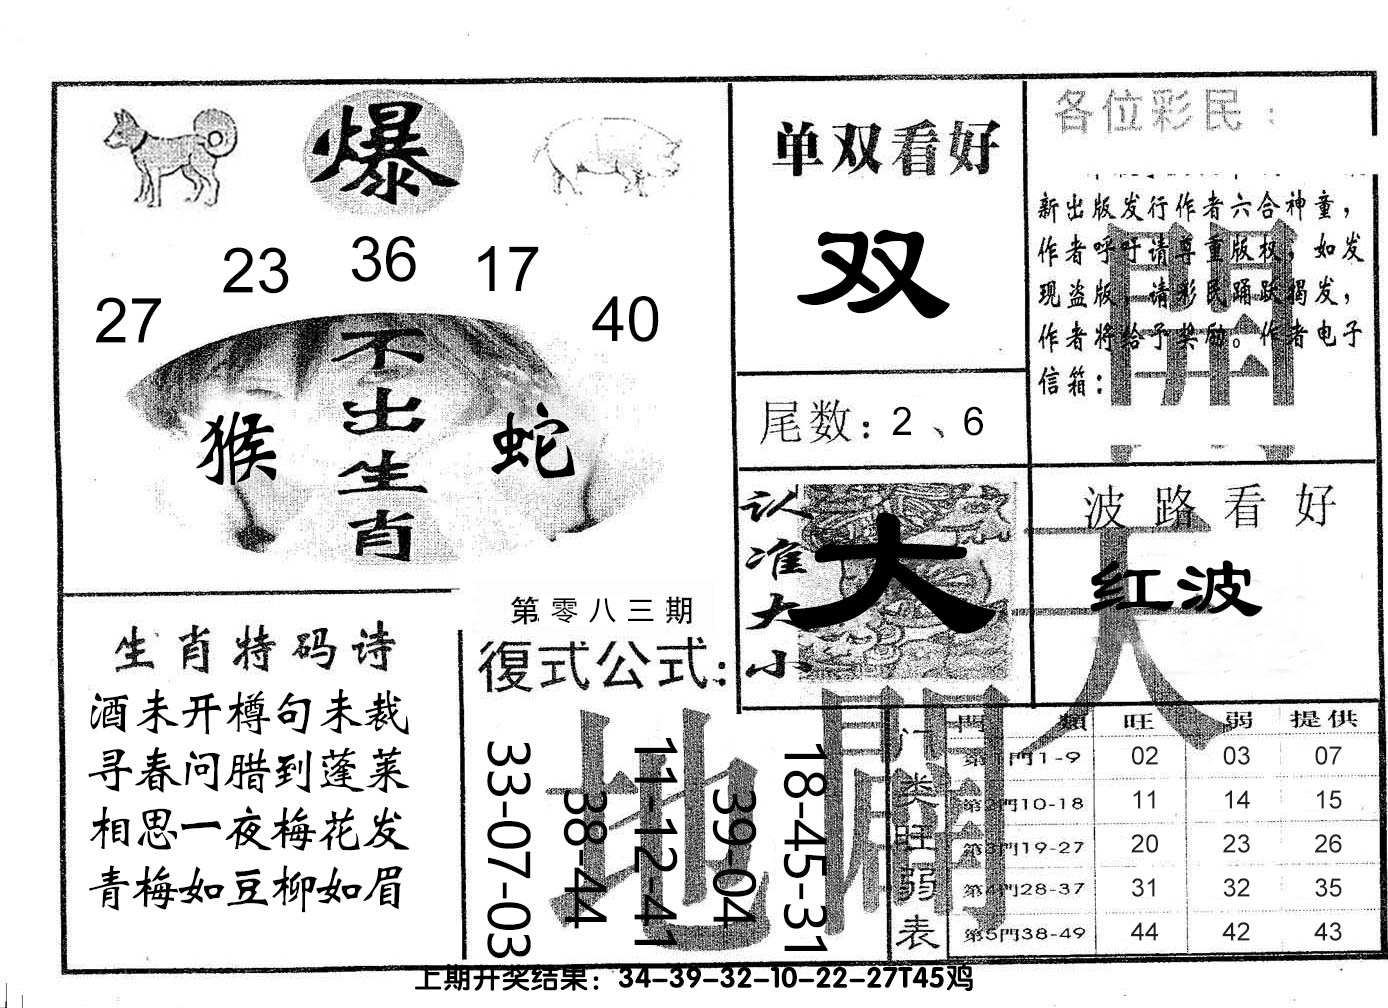 爆
27
23
36
17
40
不出生肖
猴
蛇
生肖特码诗
酒未开樽句未裁
寻春问腊到蓬莱
相思一夜梅花发
青梅如豆柳如眉
第零八三期
復式公式：
33-07-03
38-44
11-12-41
39-04
18-45-31
地開
单双看好
双
尾数：2、6
认准大小
大
各位彩民：
新出版发行作者六合神童，
作者呼吁请尊重版权，如发
现盗版，请彩民踊跃揭发，
作者将给予奖励。作者电子
信箱：
開
天
波路看好
红波
门类旺弱表
門類 旺 弱 提供
第1門1-9 02 03 07
第2門10-18 11 14 15
第3門19-27 20 23 26
第4門28-37 31 32 35
第5門38-49 44 42 43
上期开奖结果：34-39-32-10-22-27T45鸡